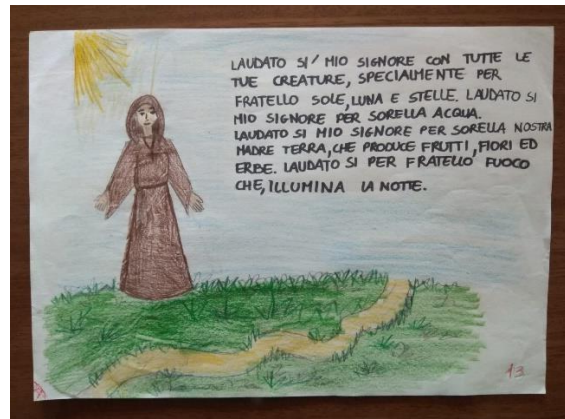 LAUDATO SI' MIO SIGNORE CON TUTTE LE
TUE CREATURE, SPECIALMENTE PER
FRATELLO SOLE, LUNA E STELLE. LAUDATO SI
MIO SIGNORE PER SORELLA ACQUA.
LAUDATO SI MIO SIGNORE PER SORELLA NOSTRA
MADRE TERRA, CHE PRODUCE FRUTTI, FIORI ED
ERBE. LAUDATO SI PER FRATELLO FUOCO
CHE, ILLUMINA LA NOTTE.
13